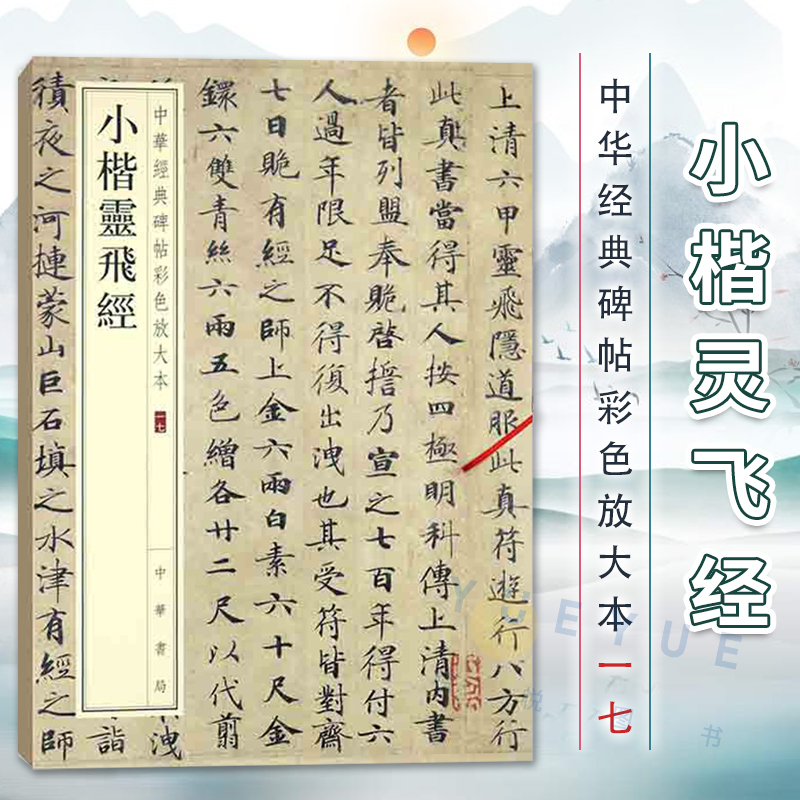 小楷靈飛經
中華經典碑帖彩色放大本
一七
中華書局
上清六甲靈飛隱道服此真符遊行八方行
此真書當得其人按四極明科傳上清内書
者皆列盟奉貺啓誓乃宣之七百年得付六
人過年限足不得復出洩也其受符皆對齋
七日貺有經之師上金六兩白素六十尺金
鐶六雙青絲六兩五色繒各廿二尺以代翦
洩
詣
積夜之河摙蒙山巨石填之水津有經之師
小楷灵飞经
中华经典碑帖彩色放大本一七
YUEYUE
悦 图 书